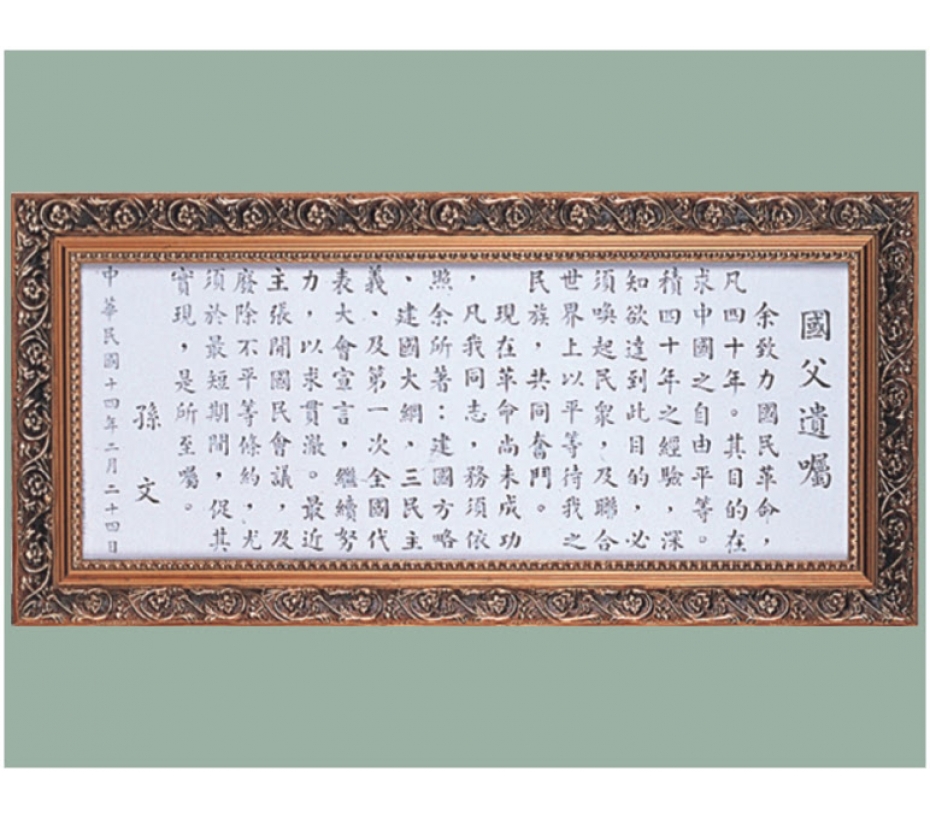 國父遺囑
余致力國民革命，
凡四十年。其目的在
求中國之自由平等。
積四十年之經驗，深
知欲達到此目的，必
須喚起民衆，及聯合
世界上以平等待我之
民族，共同奮鬥。
現在革命尚未成功
，凡我同志，務須依
照余所著：建國方略
、建國大綱，三民主
義、及第一次全國代
表大會宣言，繼續努
力，以求貫澈。最近
主張開國民會議，及
廢除不平等條約，尤
須於最短期間，促其
實現，是所至囑。
孫文
中華民國十四年二月二十四日